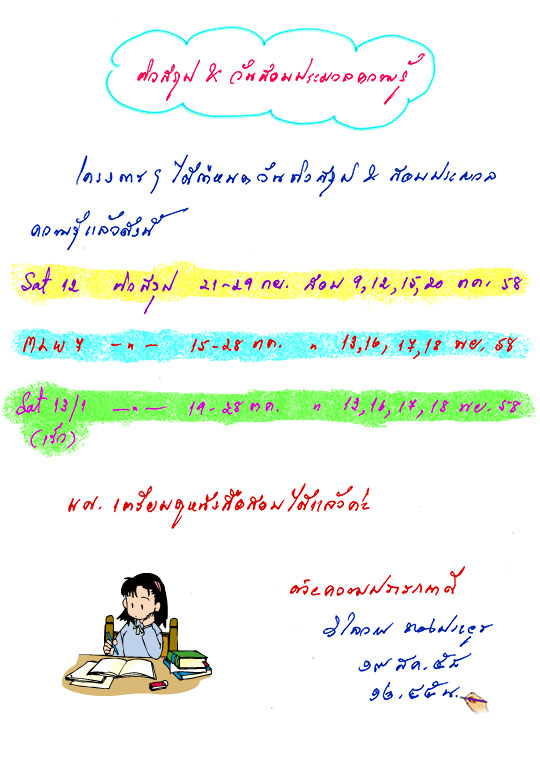 ติวสรุป & วันสอบประมวลความรู้
โครงการฯ ได้กำหนดวันติวสรุป & สอบประมวล
ความรู้แล้วดังนี้
Sat 12 ติวสรุป 21-29 กย. สอบ 9,12,15,20 ตค. 58
MLW 7 -"- 15-28 ตค. " 13,16,17,18 พย. 58
Sat 13/1 -"- 19-28 ตค. " 13,16,17,18 พย. 58
(เร็ว)
นศ. เตรียมดูหนังสือสอบได้แล้วค่ะ
ด้วยความปรารถนาดี
๑๗ สค. ๕๘